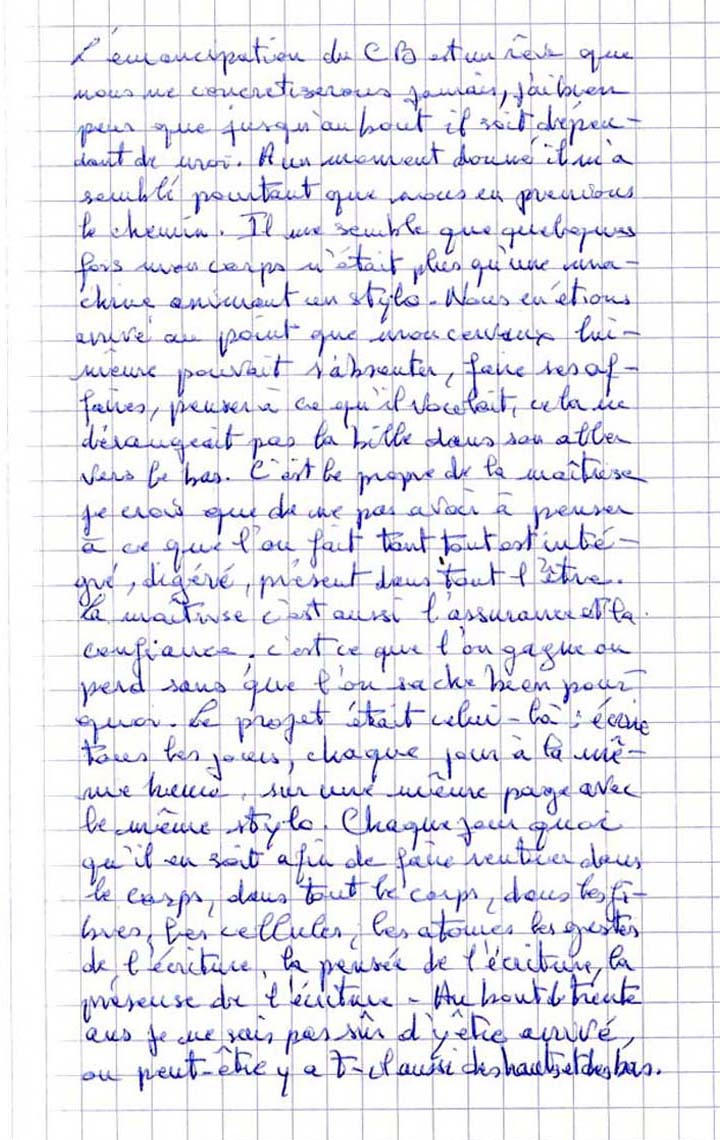 L'émancipation du CB est un rêve que
nous ne concretiserons jamais, j'ai bien
peur que jusqu'au bout il soit dépen-
dant de moi. A un moment donné il m'a
semblé pourtant que nous en prenions
le chemin. Il me semble que quelques
fois mon corps n'était plus qu'une ma-
chine animant un stylo. Nous en étions
arrivé au point que mon cerveau lui-
même pouvait s'absenter, faire ses af-
faires, penser à ce qu'il voulait, cela ne
dérangeait pas la bille dans son aller
vers le bas. C'est le propre de la maîtrise
je crois que de ne pas avoir à penser
à ce que l'on fait tant tout est inté-
gré, digéré, présent dans tout l'être.
La maîtrise c'est aussi l'assurance et la
confiance, c'est ce que l'on gagne ou
perd sans que l'on sache bien pour-
quoi. Le projet était celui-là : écrire
tous les jours, chaque jour à la mê-
me heure, sur une même page avec
le même stylo. Chaque jour quoi
qu'il en soit afin de faire rentrer dans
le corps, dans tout le corps, dans les fi-
bres, les cellules, les atomes les gestes
de l'écriture, la pensée de l'écriture, la
présence de l'écriture - Au bout de trente
ans je ne sais pas sûr d'y être arrivé,
ou peut-être y a t-il aussi des hauts et des bas.